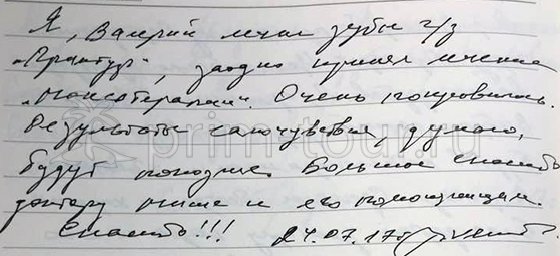 Я, Валерий лечил зубы ч/з
"Примтур", заодно принял лечение
"моксотерапии". Очень понравилось.
Результаты самочувствия, думаю,
будут попозже. Большое спасибо
доктору и его помощницам.
Спасибо!!! 24.07.17г
prim-tour.ru